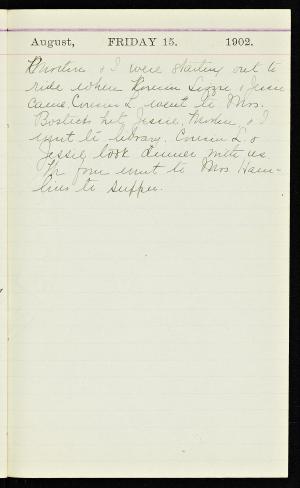 August, FRIDAY 15. 1902.
& I were starting out to
ride when Cousin Lizzie & Jessie
came. Cousin L. went to Mrs.
Bosticks but Jessie, & I
went to library. Cousin L. &
Jessie took dinner with us.
four went to Mrs Ham-
lins to supper.